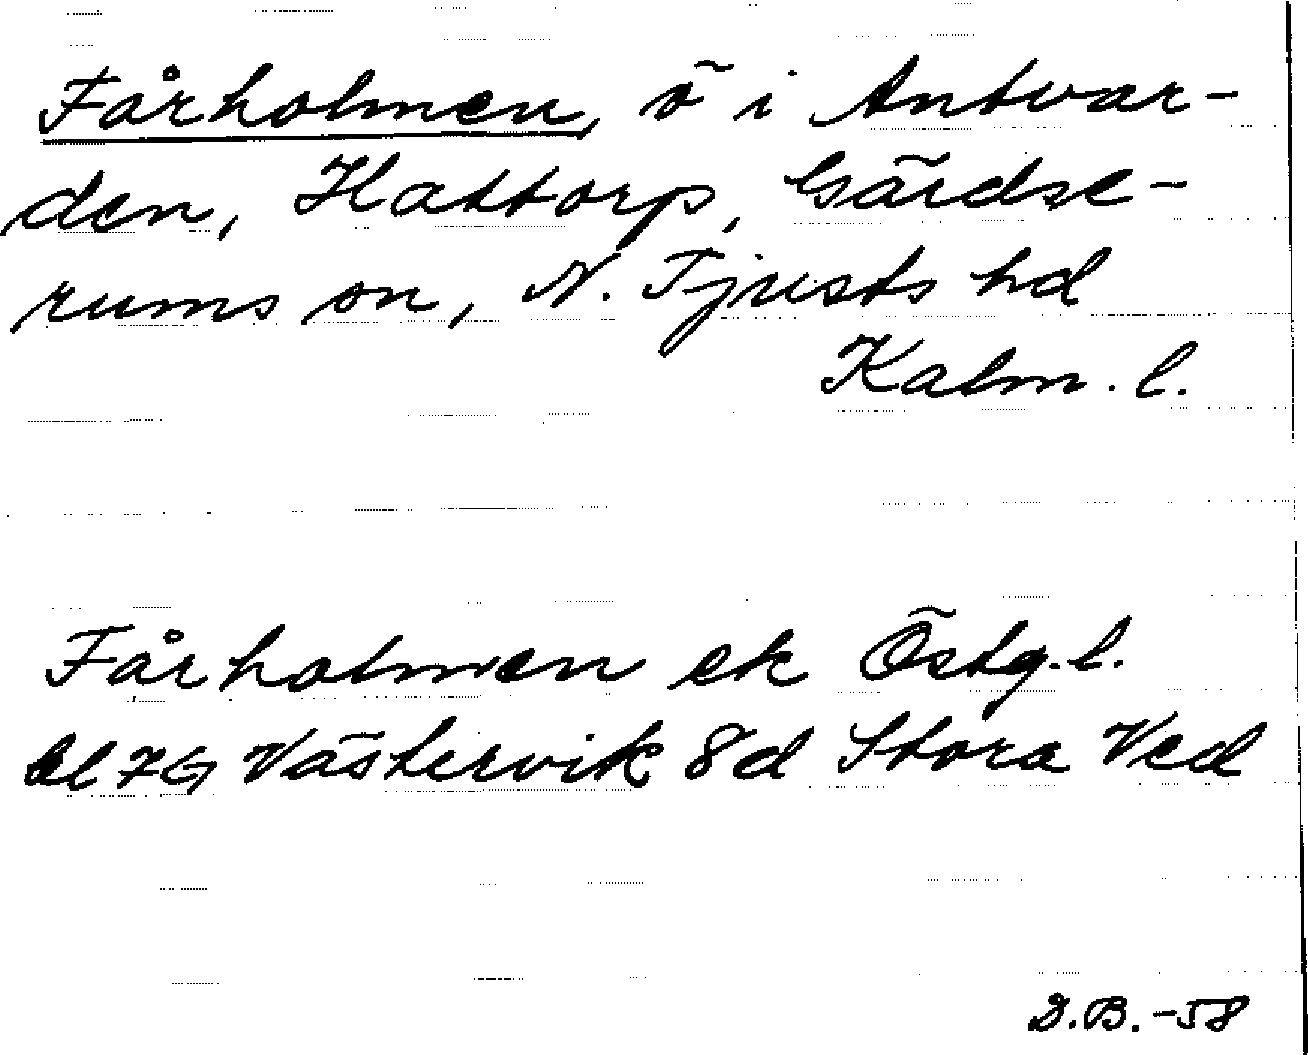 Fårholmen, ö i Antvar-
den, Hattorp, Gärdse-
rums sn, N. Tjusts hd
Kalm. l.
Fårholmen ek Östg. l.
bl 7G Västervik 8d Stora Ved
D.B. -58